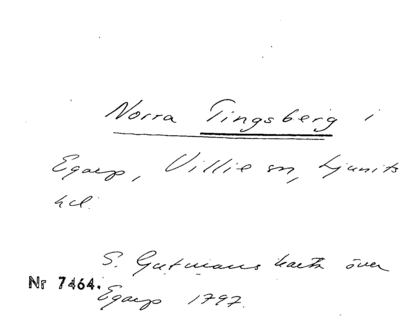 Norra Tingsberg i
Egarp, Villie sn, Ljunits
hd.
S. Gutmans karta över
Nr 7464.
Egarp 1797.